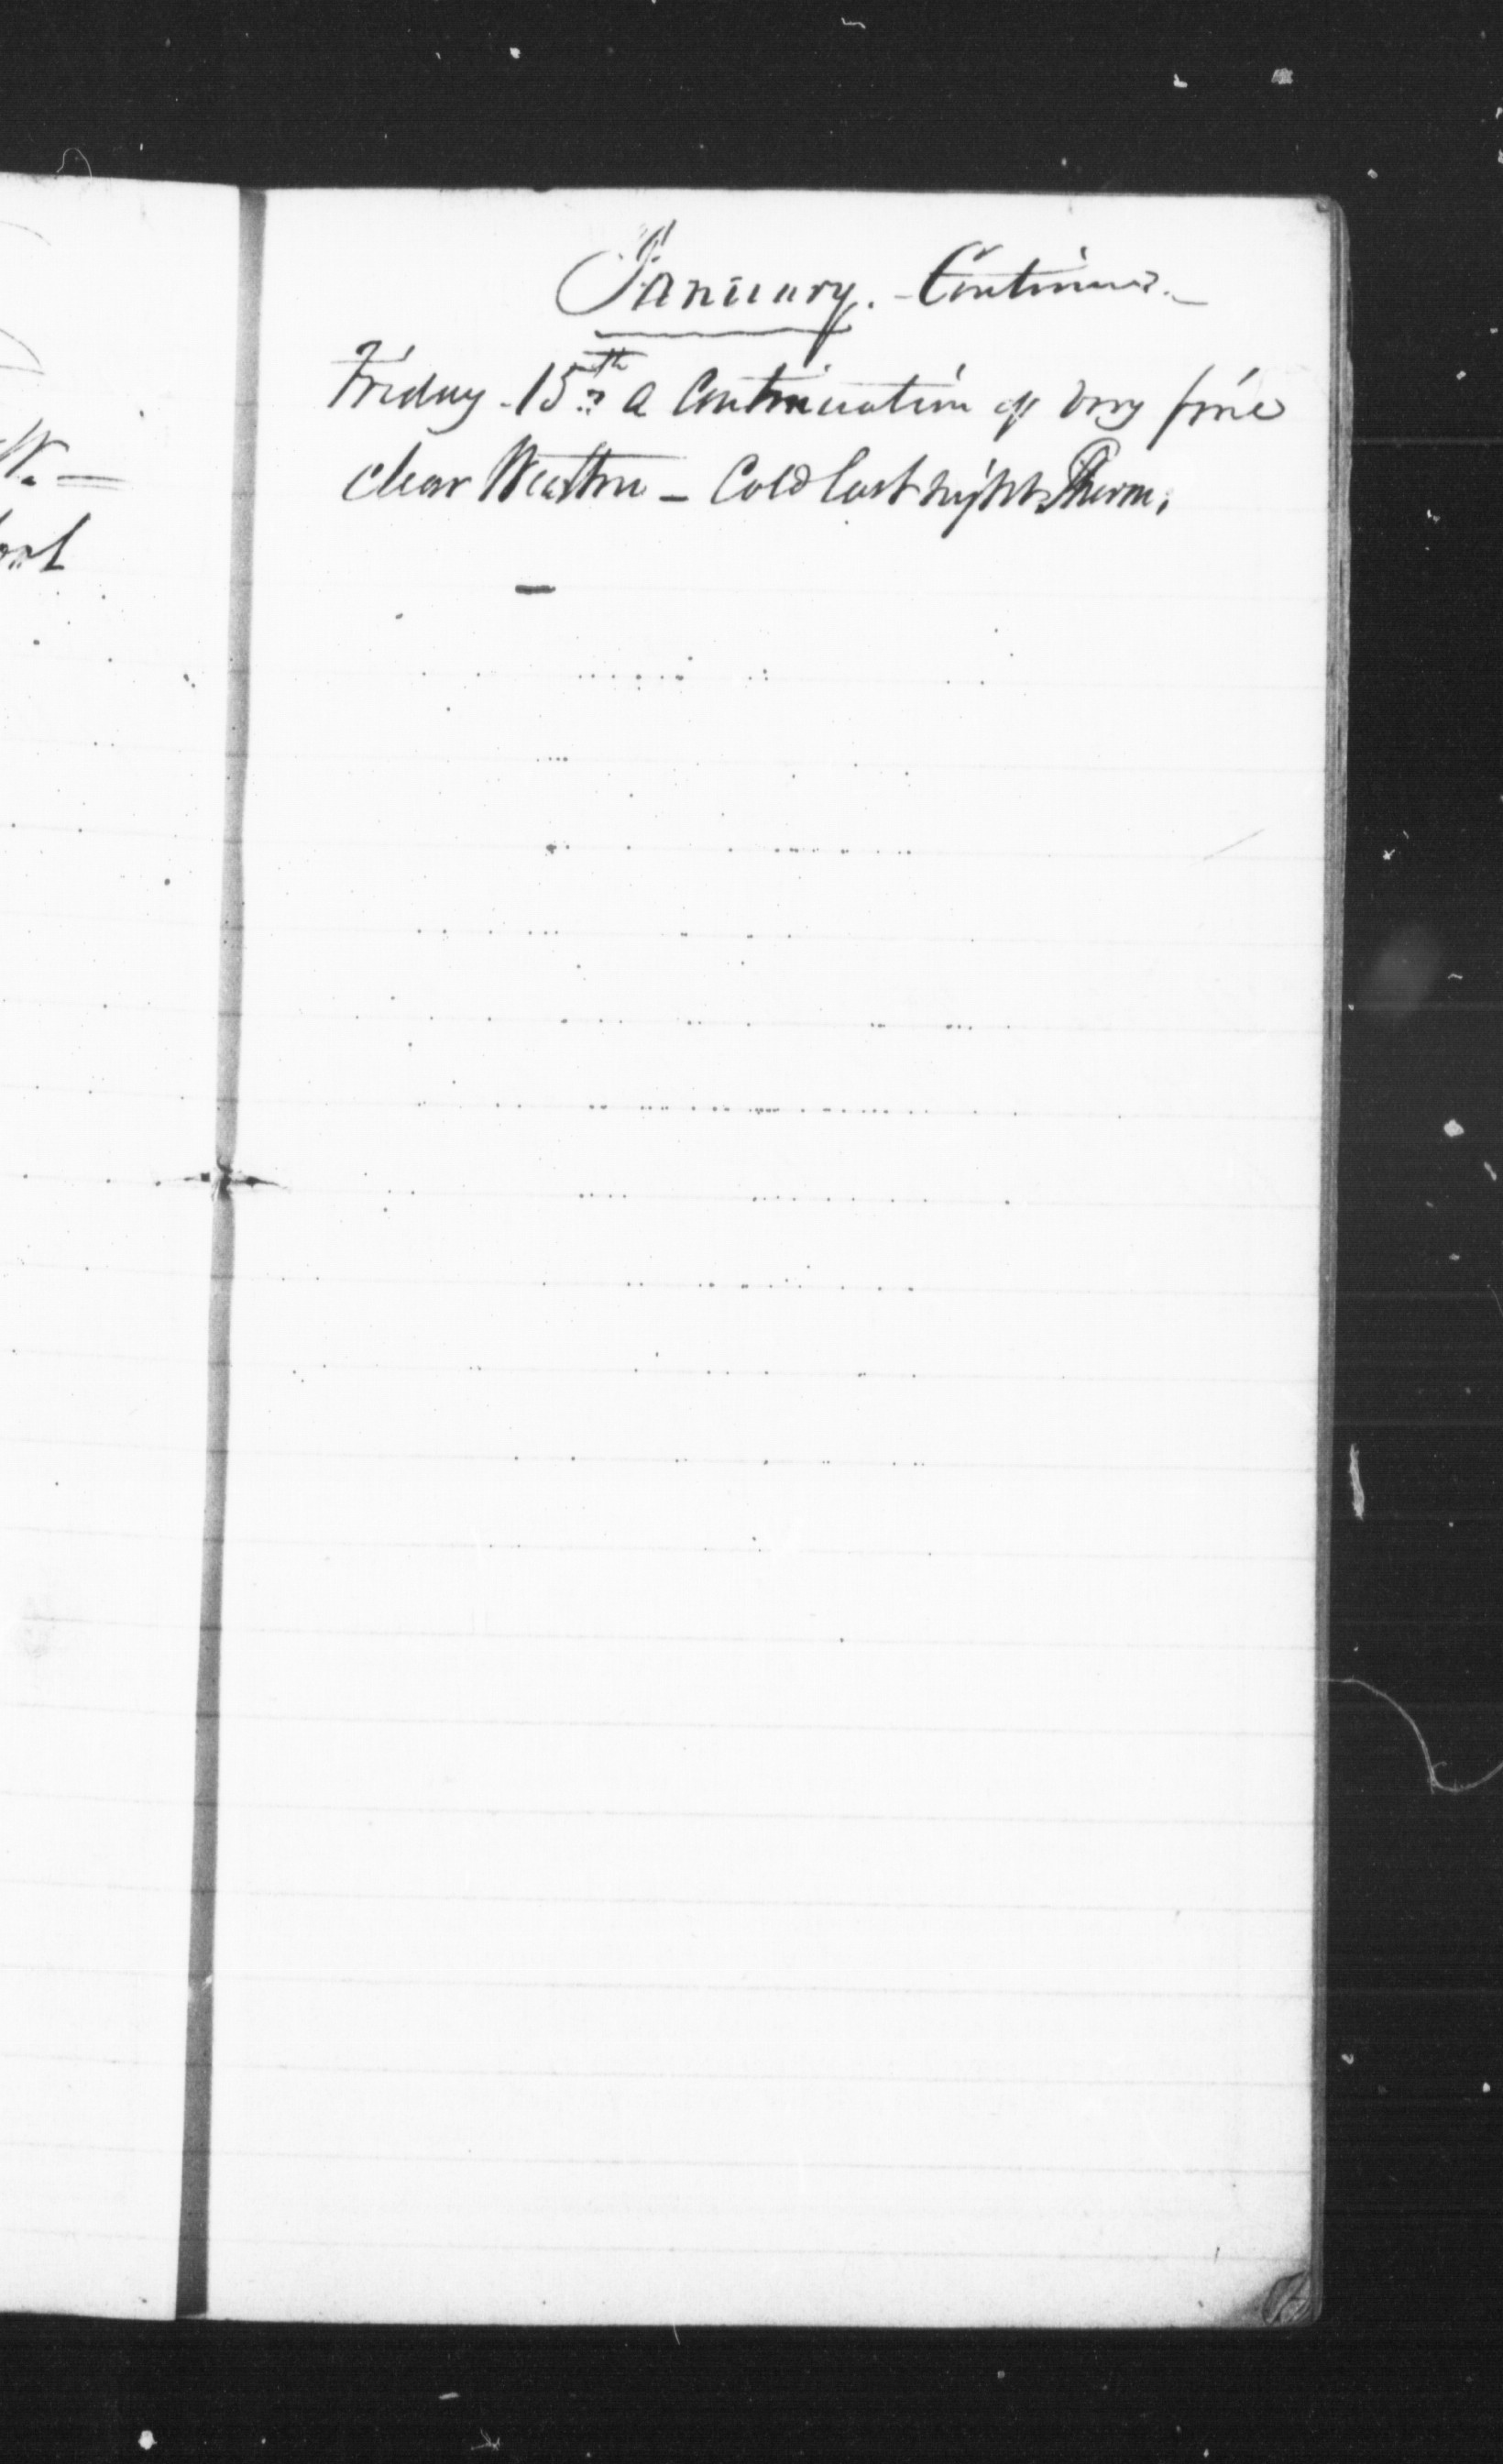 January. - Continued. -
Friday - 15th a Continuation of very fine
clear Weather - Cold last night. Therm.
-
W. =